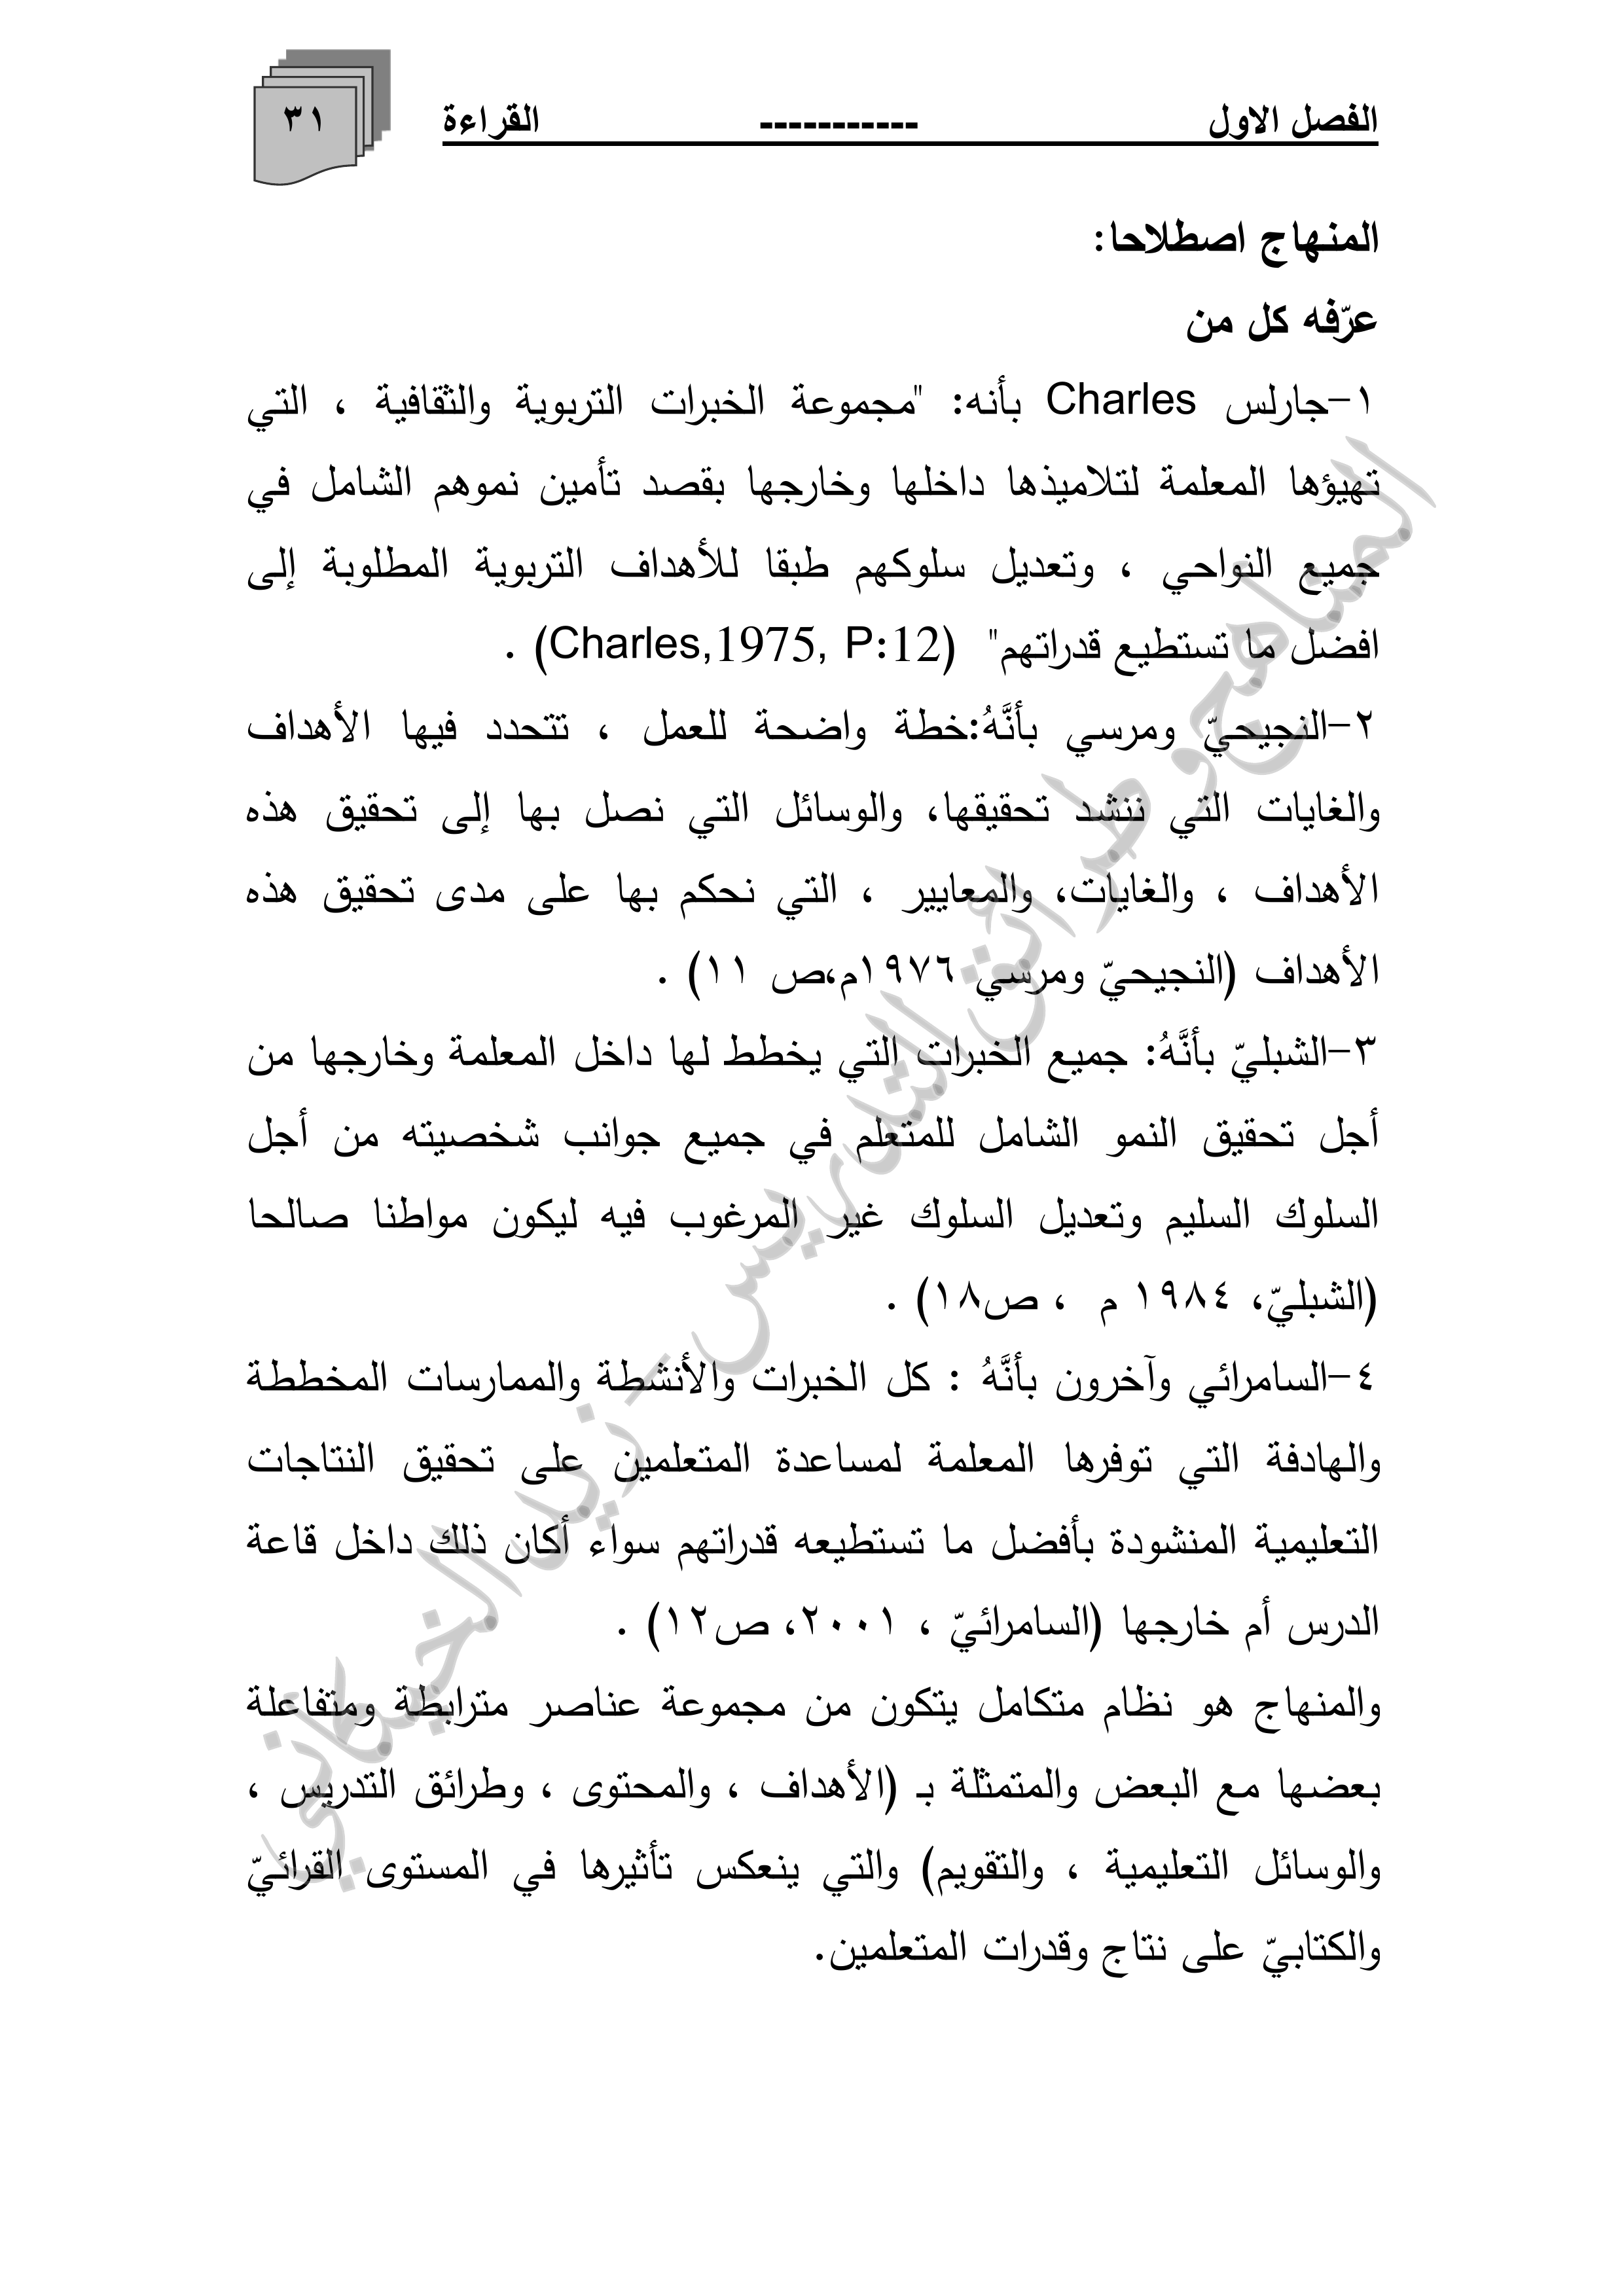 الفصل الاول ----------- القراءة
٣١
المنهاج اصطلاحا:
عرّفه كل من
١-جارلس Charles بأنه: "مجموعة الخبرات التربوية والثقافية ، التي
تهيؤها المعلمة لتلاميذها داخلها وخارجها بقصد تأمين نموهم الشامل في
جميع النواحي ، وتعديل سلوكهم طبقا للأهداف التربوية المطلوبة إلى
افضل ما تستطيع قدراتهم" (Charles,1975, P:12) .
٢-النجيحيّ ومرسي بأنَّهُ:خطة واضحة للعمل ، تتحدد فيها الأهداف
والغايات التي ننشد تحقيقها، والوسائل التي نصل بها إلى تحقيق هذه
الأهداف ، والغايات، والمعايير ، التي نحكم بها على مدى تحقيق هذه
الأهداف (النجيحيّ ومرسي ١٩٧٦م،ص ١١) .
٣-الشبليّ بأنَّهُ: جميع الخبرات التي يخطط لها داخل المعلمة وخارجها من
أجل تحقيق النمو الشامل للمتعلم في جميع جوانب شخصيته من أجل
السلوك السليم وتعديل السلوك غير المرغوب فيه ليكون مواطنا صالحا
(الشبليّ، ١٩٨٤ م ، ص١٨) .
٤-السامرائي وآخرون بأنَّهُ : كل الخبرات والأنشطة والممارسات المخططة
والهادفة التي توفرها المعلمة لمساعدة المتعلمين على تحقيق النتاجات
التعليمية المنشودة بأفضل ما تستطيعه قدراتهم سواء أكان ذلك داخل قاعة
الدرس أم خارجها (السامرائيّ ، ٢٠٠١، ص١٢) .
والمنهاج هو نظام متكامل يتكون من مجموعة عناصر مترابطة ومتفاعلة
بعضها مع البعض والمتمثلة بـ (الأهداف ، والمحتوى ، وطرائق التدريس ،
والوسائل التعليمية ، والتقويم) والتي ينعكس تأثيرها في المستوى القرائيّ
والكتابيّ على نتاج وقدرات المتعلمين.
المناهج وطرائق التدريس - زيد الخيكاني